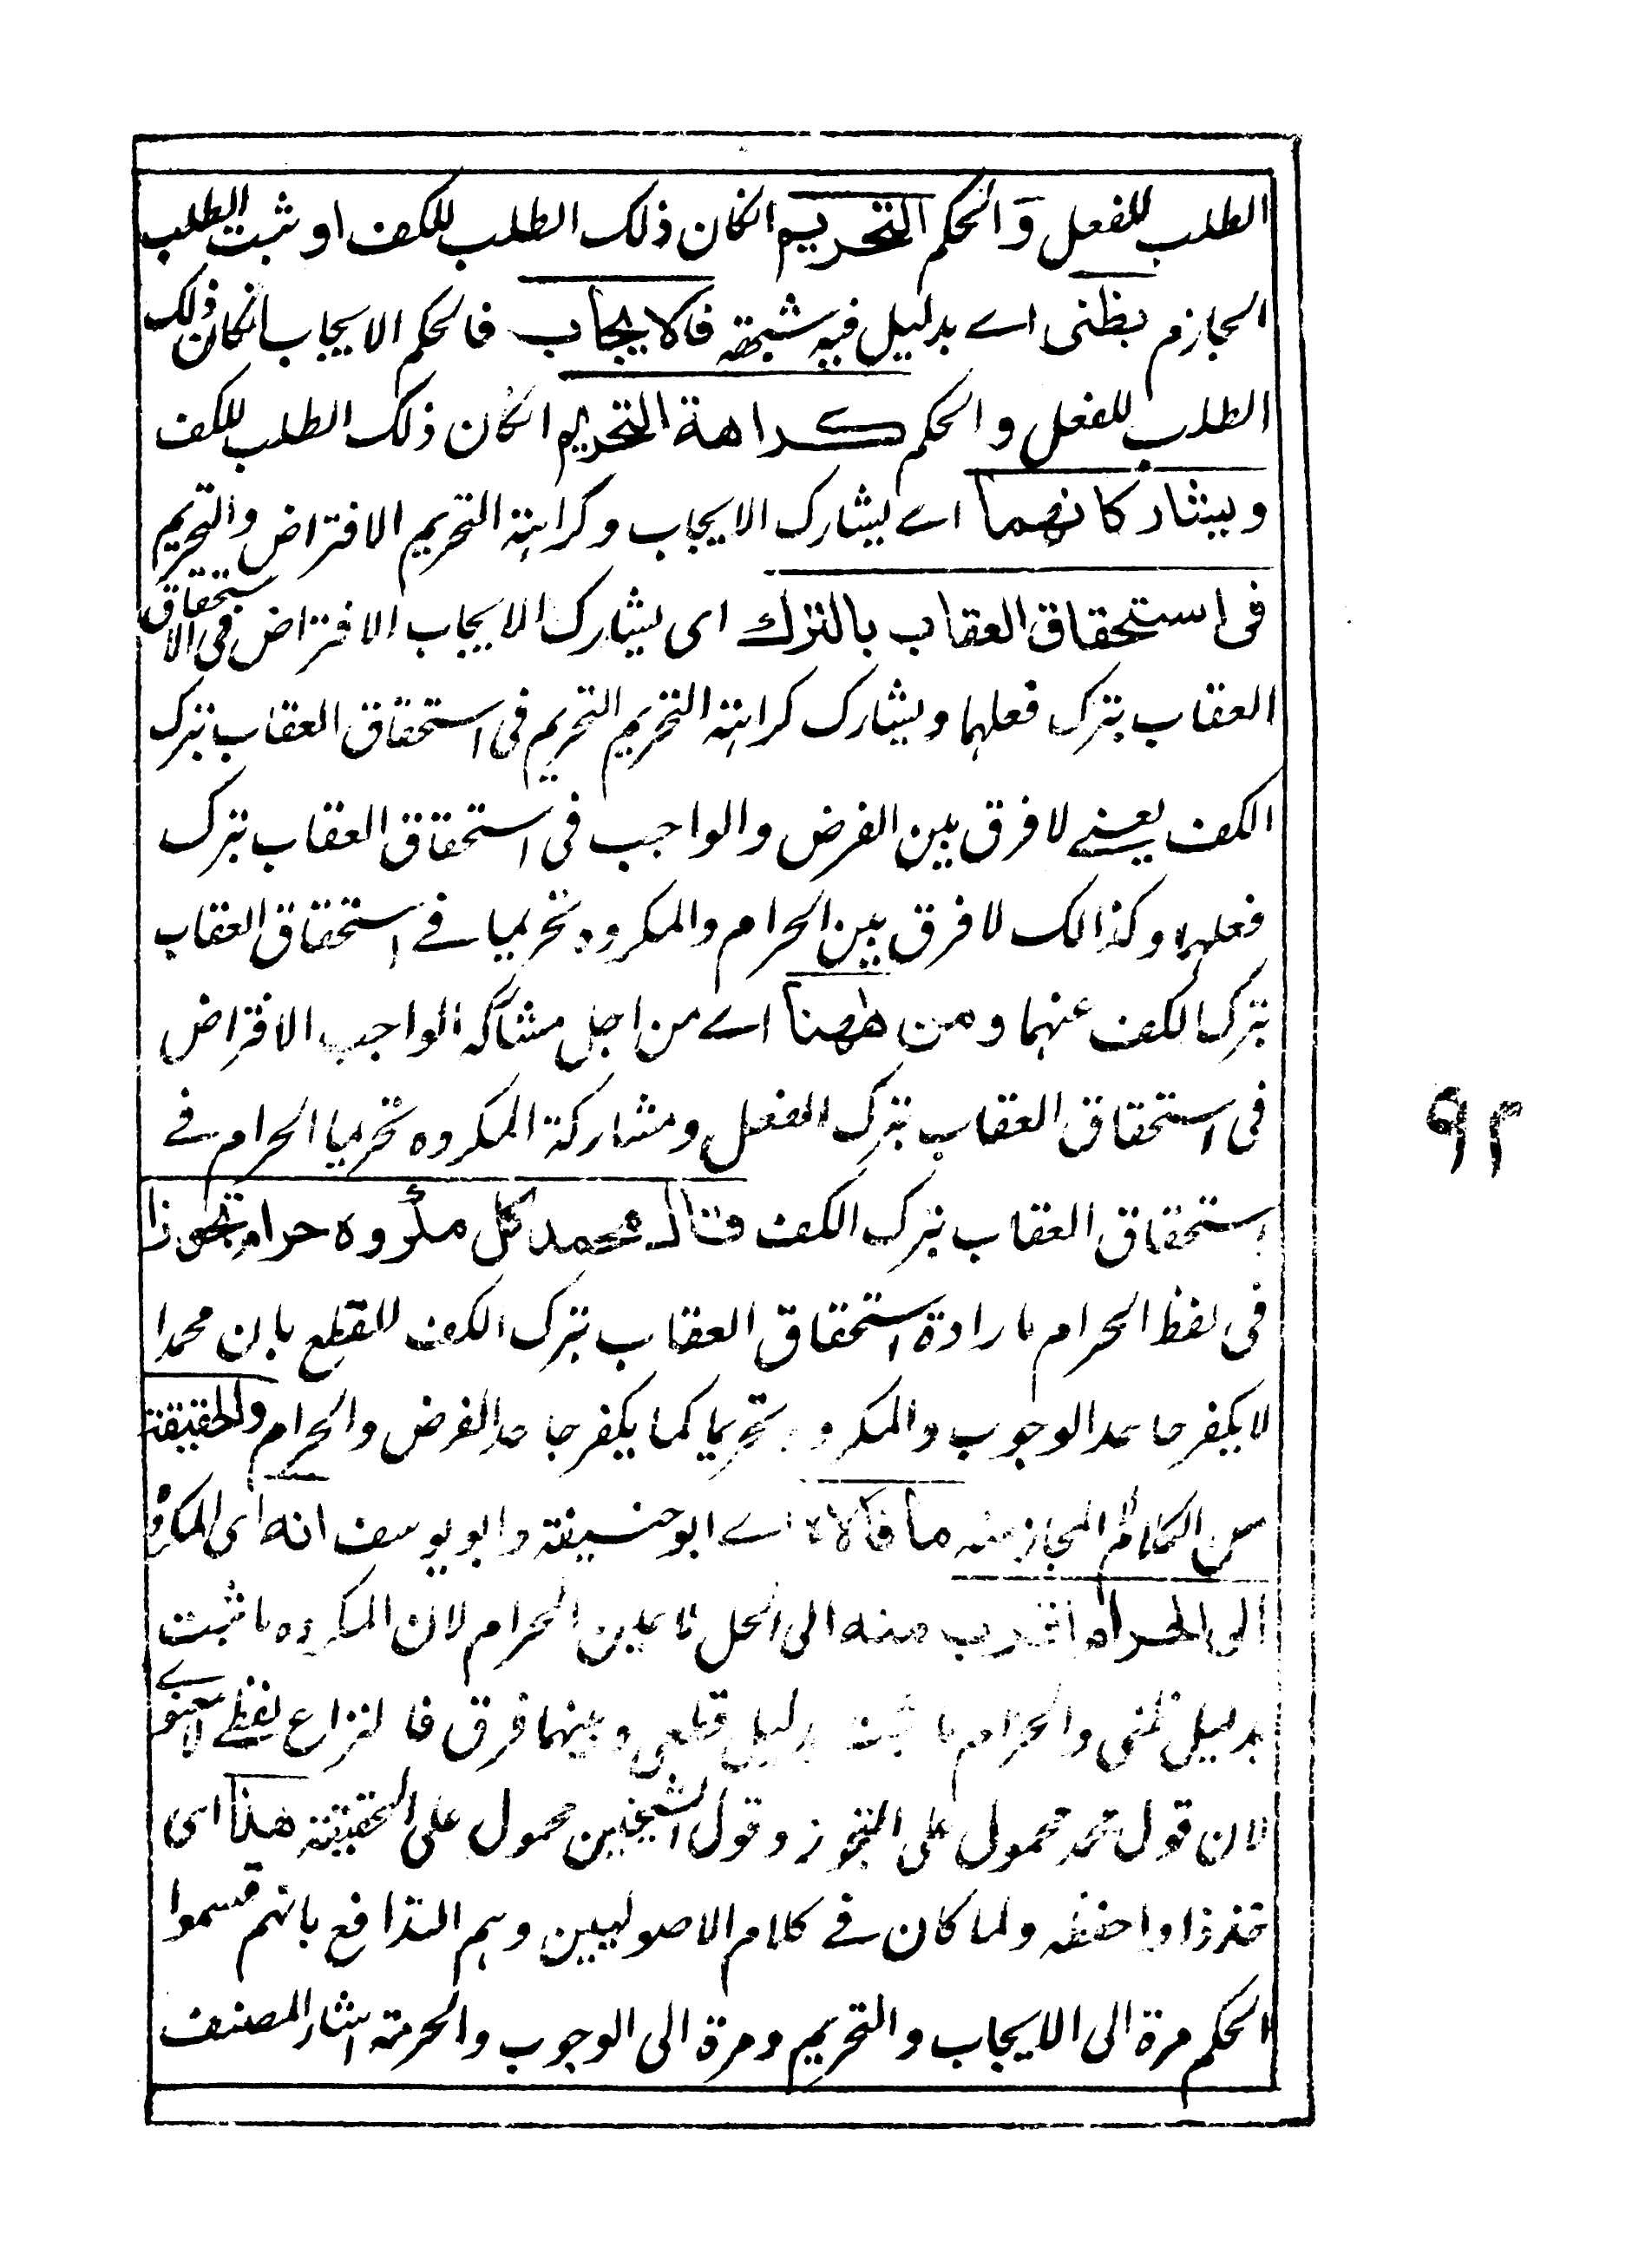 الطلب للفعل والحكم التحريم انكان ذلك الطلب للكف او ثبت الطلب
الجازم بظنى اے بدليل فيه شبهة فالايجاب فالحكم الايجاب انكان ذلك
الطلب للفعل والحكم كراهة التحريم انكان ذلك الطلب للكف
ويشاركانهما اے يشارك الايجاب وكراهة التحريم الافتراض والتحريم
فى استحقاق العقاب بالترك اى يشارك الايجاب الافتراض فى الاستحقاق
العقاب بترك فعلهما ويشارك كراهة التحريم التحريم فى استحقاق العقاب بترك
الكف يعنے لا فرق بين الفرض والواجب فى استحقاق العقاب بترك
فعلهما وكذالك لا فرق بين الحرام والمكروه تحريما فے استحقاق العقاب
بترك الكف عنهما ومن ههنا اے من اجل مشاركة الواجب الافتراض
فى استحقاق العقاب بترك الفعل ومشاركة المكروه تحريما الحرام فے
استحقاق العقاب بترك الكف قال محمد كل مكروه حرام تجوزا
فى لفظ الحرام بارادة استحقاق العقاب بترك الكف للقطع بان محمدا
لا يكفر جاحد الوجوب والمكروه تحريما كما يكفر جاحد الفرض والحرام والحقيقة
من الكلام المجاز منه ما قالاه اے ابو حنيفة وابو يوسف انه اى المكروه
الى الحرام اقرب منه الى الحل لا عين الحرام لان المكروه ما ثبت
بدليل ظنى والحرام ما ثبت بدليل قطعى وبينهما فرق فالنزاع لفظے لا معنوے
لان قول محمد محمول على التجوز وقول الشيخين محمول على الحقيقة هذا اى
خذ ذا واحفظه ولما كان فے كلام الاصوليين وهم التدافع بانهم قسموا
الحكم مرة الى الايجاب والتحريم ومرة الى الوجوب والحرمة اشار المصنف
٩٣